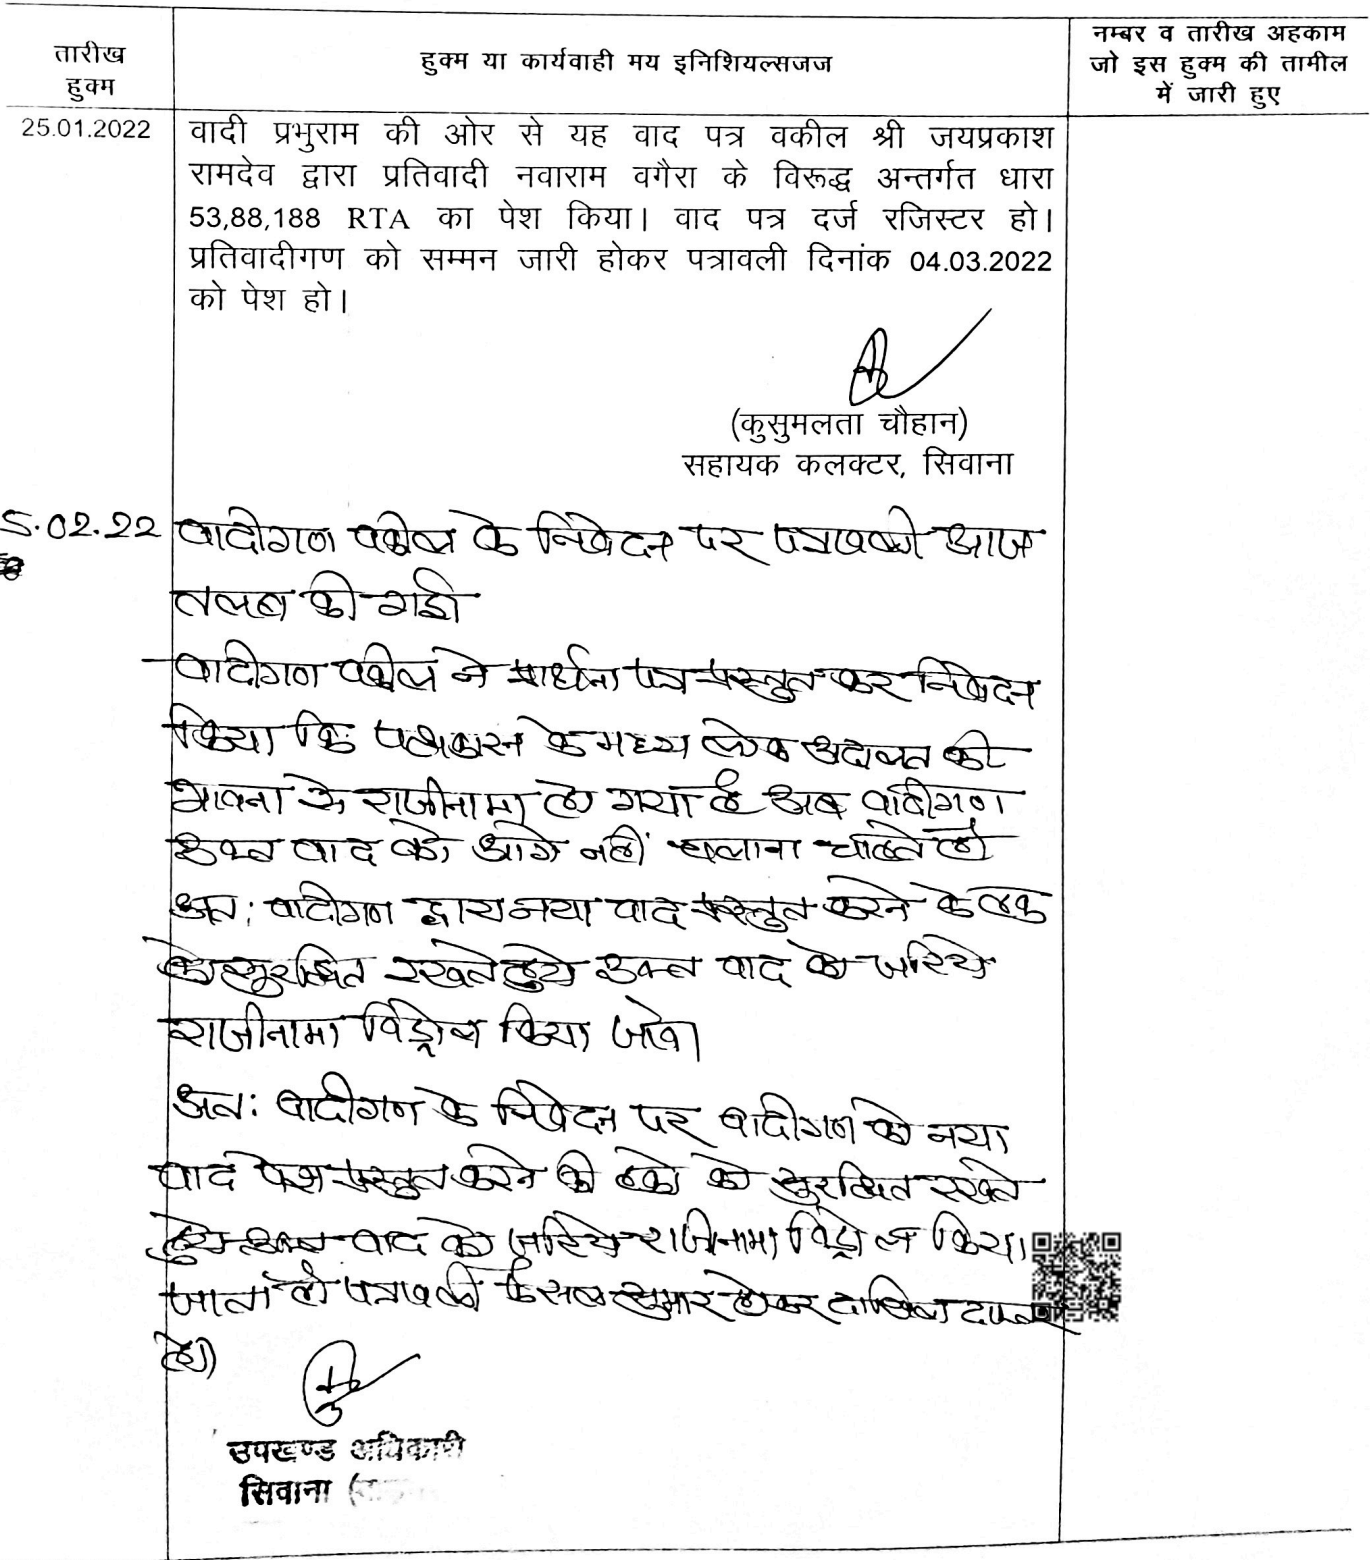 तारीख
हुक्म
हुक्म या कार्यवाही मय इनिशियल्सजज
नम्बर व तारीख अहकाम
जो इस हुक्म की तामील
में जारी हुए
25.01.2022
वादी प्रभुराम की ओर से यह वाद पत्र वकील श्री जयप्रकाश
रामदेव द्वारा प्रतिवादी नवाराम वगैरा के विरूद्ध अन्तर्गत धारा
53,88,188 RTA का पेश किया। वाद पत्र दर्ज रजिस्टर हो।
प्रतिवादीगण को सम्मन जारी होकर पत्रावली दिनांक 04.03.2022
को पेश हो।
(कुसुमलता चौहान)
सहायक कलक्टर, सिवाना
5.02.22
वादीगण वकील के निवेदन पर पत्रावली आज
तलब की गई
वादीगण वकील ने प्रार्थना पत्र प्रस्तुत कर निवेदन
किया कि पक्षकारान के मध्य लोक अदालत की
भावना से राजीनामा हो गया है अब वादीगण
उक्त वाद को आगे नहीं चलाना चाहते है
अतः वादीगण द्वारा नया वाद प्रस्तुत करने के हक
को सुरक्षित रखते हुये उक्त वाद को जरिये
राजीनामा विड्रोल किया जावे।
अतः वादीगण के निवेदन पर वादीगण को नया
वाद पेश प्रस्तुत करने की हको को सुरक्षित रखते
हुये उक्त वाद को जरिये राजीनामा विड्रोल किया
जाता है पत्रावली फैसल सुमार होकर दाखिल दफ्तर
हो।
उपखण्ड अधिकारी
सिवाना